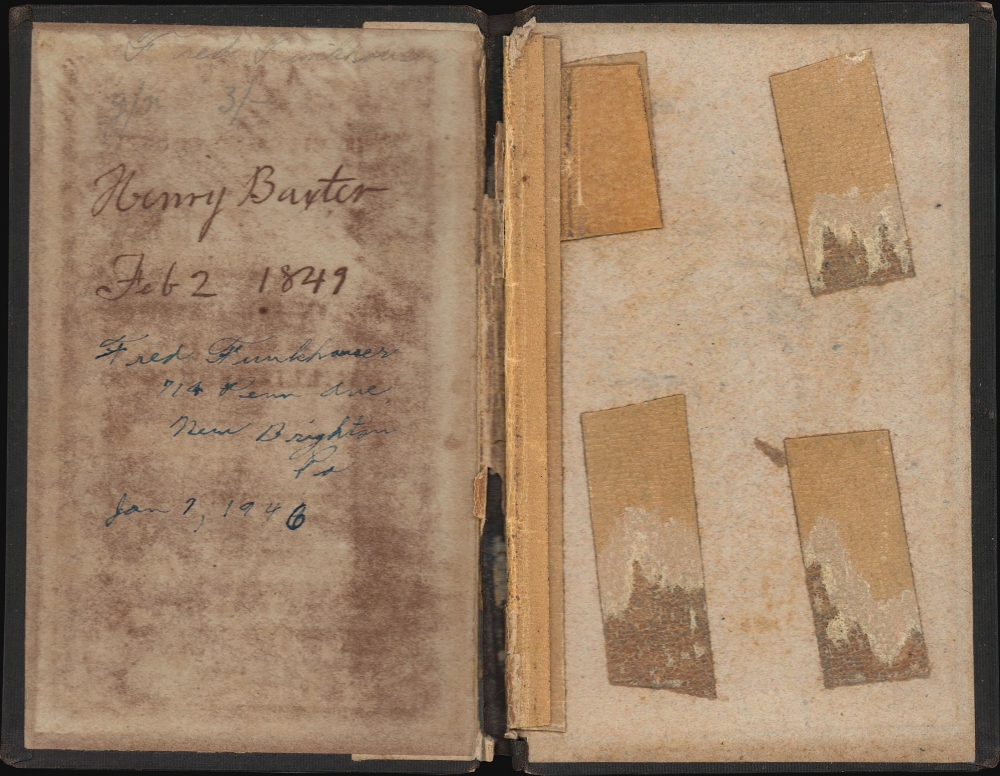 Fred Funkhouser
3/-
Henry Baxter
Feb 2 1849
Fred Funkhouser
714 Penn Ave
New Brighton
Pa
Jan 7, 1946